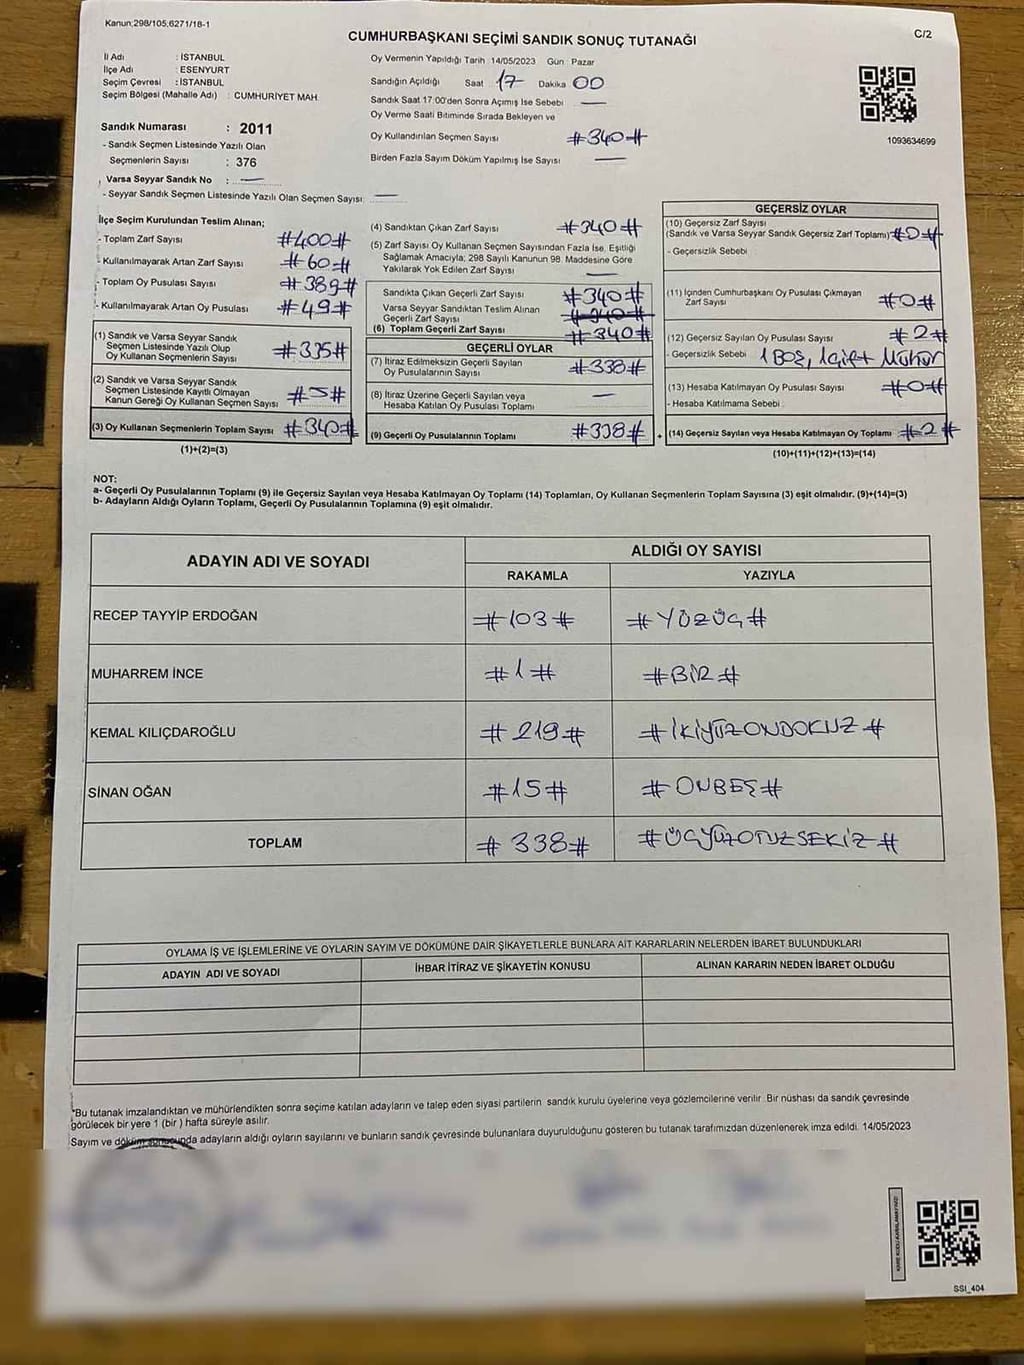 Kanun;298/105;6271/18-1
C/2
CUMHURBAŞKANI SEÇİMİ SANDIK SONUÇ TUTANAĞI
İl Adı : İSTANBUL
İlçe Adı : ESENYURT
Seçim Çevresi : İSTANBUL
Seçim Bölgesi (Mahalle Adı) : CUMHURİYET MAH.
Sandık Numarası : 2011
- Sandık Seçmen Listesinde Yazılı Olan
Seçmenlerin Sayısı : 376
Varsa Seyyar Sandık No : —
- Seyyar Sandık Seçmen Listesinde Yazılı Olan Seçmen Sayısı: —
Oy Vermenin Yapıldığı Tarih 14/05/2023 Gün : Pazar
Sandığın Açıldığı Saat 17 Dakika 00
Sandık Saat 17:00'den Sonra Açımış İse Sebebi —
Oy Verme Saati Bitiminde Sırada Bekleyen ve
Oy Kullandırılan Seçmen Sayısı #340#
Birden Fazla Sayım Döküm Yapılmış İse Sayısı —
1093634699
İlçe Seçim Kurulundan Teslim Alınan;
- Toplam Zarf Sayısı #400#
- Kullanılmayarak Artan Zarf Sayısı #60#
- Toplam Oy Pusulası Sayısı #389#
- Kullanılmayarak Artan Oy Pusulası #49#
(1) Sandık ve Varsa Seyyar Sandık
Seçmen Listesinde Yazılı Olup
Oy Kullanan Seçmenlerin Sayısı #335#
(2) Sandık ve Varsa Seyyar Sandık
Seçmen Listesinde Kayıtlı Olmayan
Kanun Gereği Oy Kullanan Seçmen Sayısı #5#
(3) Oy Kullanan Seçmenlerin Toplam Sayısı #340#
(1)+(2)=(3)
(4) Sandıktan Çıkan Zarf Sayısı #340#
(5) Zarf Sayısı Oy Kullanan Seçmen Sayısından Fazla İse, Eşitliği
Sağlamak Amacıyla; 298 Sayılı Kanunun 98. Maddesine Göre
Yakılarak Yok Edilen Zarf Sayısı —
Sandıkta Çıkan Geçerli Zarf Sayısı #340#
Varsa Seyyar Sandıktan Teslim Alınan
Geçerli Zarf Sayısı #340#
(6) Toplam Geçerli Zarf Sayısı #340#
GEÇERLİ OYLAR
(7) İtiraz Edilmeksizin Geçerli Sayılan
Oy Pusulalarının Sayısı #338#
(8) İtiraz Üzerine Geçerli Sayılan veya
Hesaba Katılan Oy Pusulası Toplamı —
(9) Geçerli Oy Pusulalarının Toplamı #338#
+
GEÇERSİZ OYLAR
(10) Geçersiz Zarf Sayısı
(Sandık ve Varsa Seyyar Sandık Geçersiz Zarf Toplamı) #0#
- Geçersizlik Sebebi
(11) İçinden Cumhurbaşkanı Oy Pusulası Çıkmayan
Zarf Sayısı #0#
(12) Geçersiz Sayılan Oy Pusulası Sayısı #2#
- Geçersizlik Sebebi 1 BOŞ, 1 Çift Mühür
(13) Hesaba Katılmayan Oy Pusulası Sayısı #0#
- Hesaba Katılmama Sebebi
(14) Geçersiz Sayılan veya Hesaba Katılmayan Oy Toplamı #2#
(10)+(11)+(12)+(13)=(14)
NOT:
a- Geçerli Oy Pusulalarının Toplamı (9) ile Geçersiz Sayılan veya Hesaba Katılmayan Oy Toplamı (14) Toplamları, Oy Kullanan Seçmenlerin Toplam Sayısına (3) eşit olmalıdır. (9)+(14)=(3)
b- Adayların Aldığı Oyların Toplamı, Geçerli Oy Pusulalarının Toplamına (9) eşit olmalıdır.
ADAYIN ADI VE SOYADI ALDIĞI OY SAYISI
RAKAMLA YAZIYLA
RECEP TAYYİP ERDOĞAN #103# #YÜZÜÇ#
MUHARREM İNCE #1# #BİR#
KEMAL KILIÇDAROĞLU #219# #İKİYÜZONDOKUZ#
SİNAN OĞAN #15# #ONBEŞ#
TOPLAM #338# #ÜÇYÜZOTUZSEKİZ#
OYLAMA İŞ VE İŞLEMLERİNE VE OYLARIN SAYIM VE DÖKÜMÜNE DAİR ŞİKAYETLERLE BUNLARA AİT KARARLARIN NELERDEN İBARET BULUNDUKLARI
ADAYIN ADI VE SOYADI İHBAR İTİRAZ VE ŞİKAYETİN KONUSU ALINAN KARARIN NEDEN İBARET OLDUĞU
*Bu tutanak imzalandıktan ve mühürlendikten sonra seçime katılan adayların ve talep eden siyasi partilerin sandık kurulu üyelerine veya gözlemcilerine verilir. Bir nüshası da sandık çevresinde
görülecek bir yere 1 (bir ) hafta süreyle asılır.
Sayım ve döküm sonucunda adayların aldığı oyların sayılarını ve bunların sandık çevresinde bulunanlara duyurulduğunu gösteren bu tutanak tarafımızdan düzenlenerek imza edildi. 14/05/2023
SSI_404